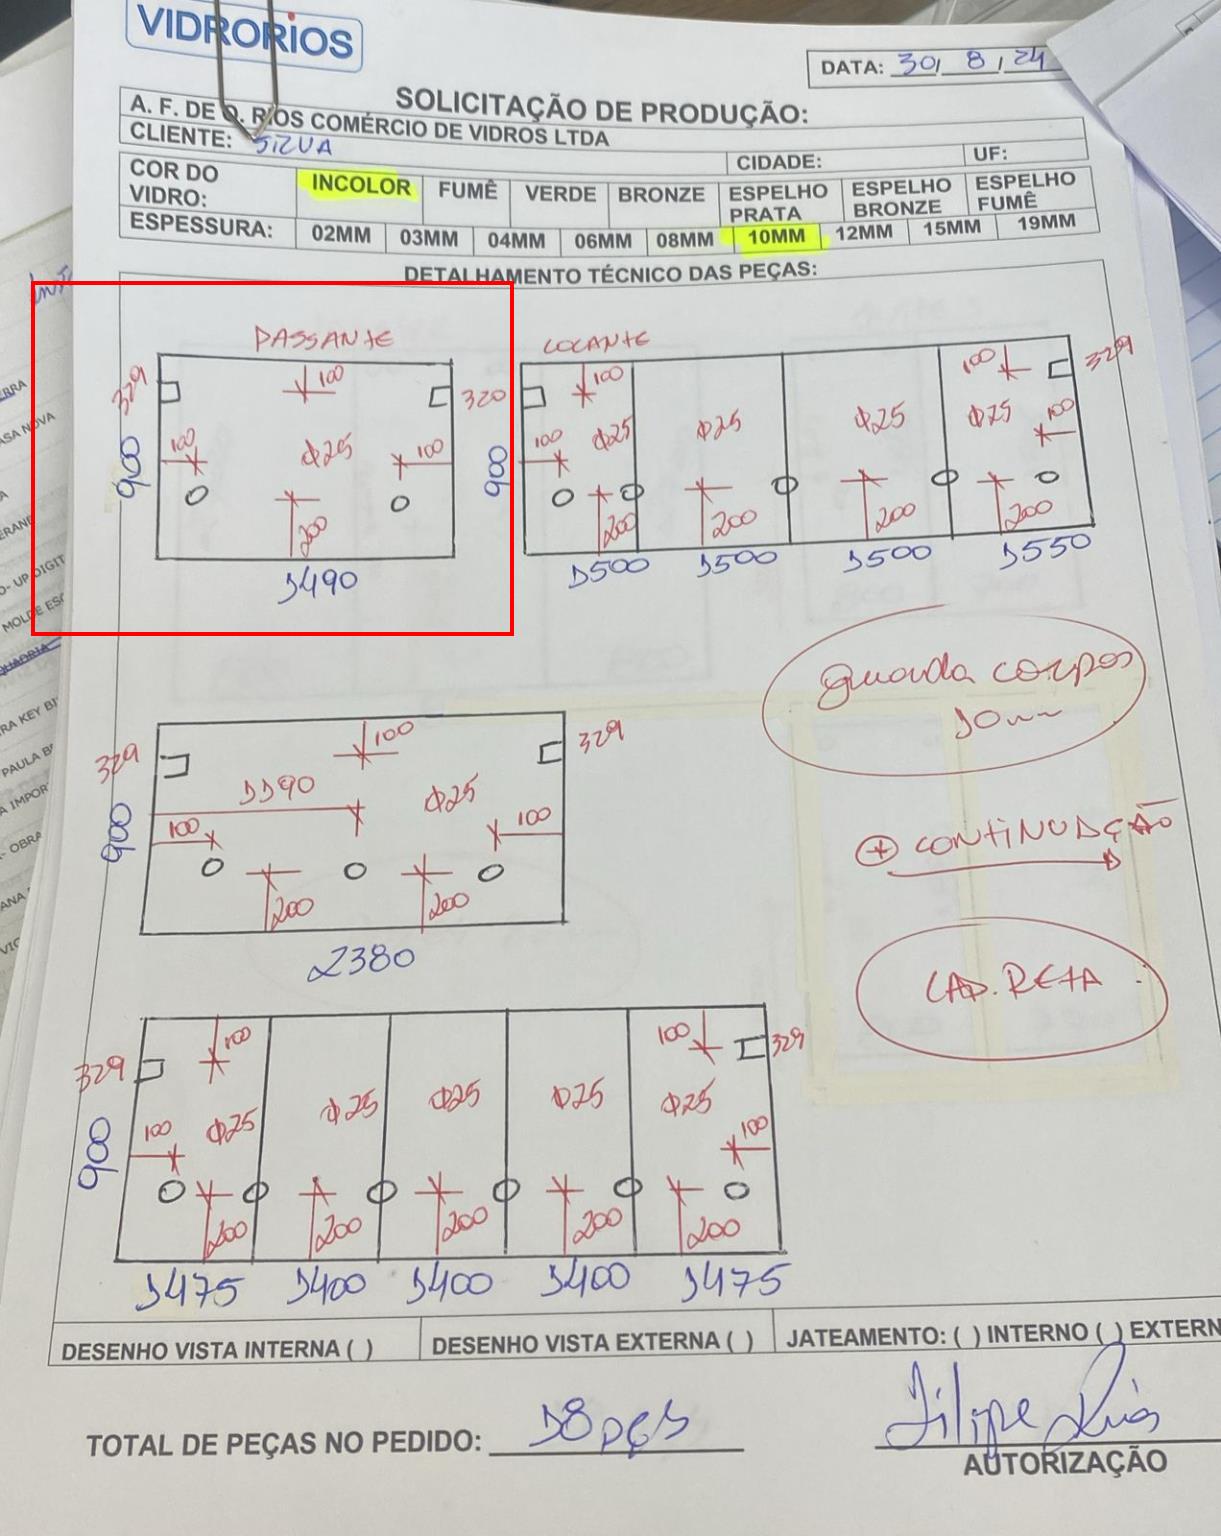 VIDRORIOS
DATA: 30/ 8 / 24
SOLICITAÇÃO DE PRODUÇÃO:
A. F. DE O. RIOS COMÉRCIO DE VIDROS LTDA
CLIENTE: SILVA
CIDADE: UF:
COR DO VIDRO: INCOLOR FUMÊ VERDE BRONZE ESPELHO PRATA ESPELHO BRONZE ESPELHO FUMÊ
ESPESSURA: 02MM 03MM 04MM 06MM 08MM 10MM 12MM 15MM 19MM
DETALHAMENTO TÉCNICO DAS PEÇAS:
PASSANTE
329 100 320
100 Φ25 100
900
200
1490
COCANTE
100 100 329
100 Φ25 Φ25 Φ25 Φ25 100
900
200 200 200 200
1500 1500 1500 1550
guarda corpos
10mm
329 100 329
1190 Φ25
100 100
900
200 200
2380
+ CONTINUAÇÃO
LAP. RETA
100 100
329 329
Φ25 Φ25 Φ25 Φ25 Φ25
100 100
900
200 200 200 200 200
1475 1400 1400 1400 1475
DESENHO VISTA INTERNA ( ) DESENHO VISTA EXTERNA ( ) JATEAMENTO: ( ) INTERNO ( ) EXTERN
TOTAL DE PEÇAS NO PEDIDO: 18 pçs
Filipe Rios
AUTORIZAÇÃO
ERRA
ASA NOVA
ERANI
O- UP DIGIT
MOLDE ESC
QUADRIA
RA KEY BI
PAULA B
A IMPOR
- OBRA
ANA
VIC